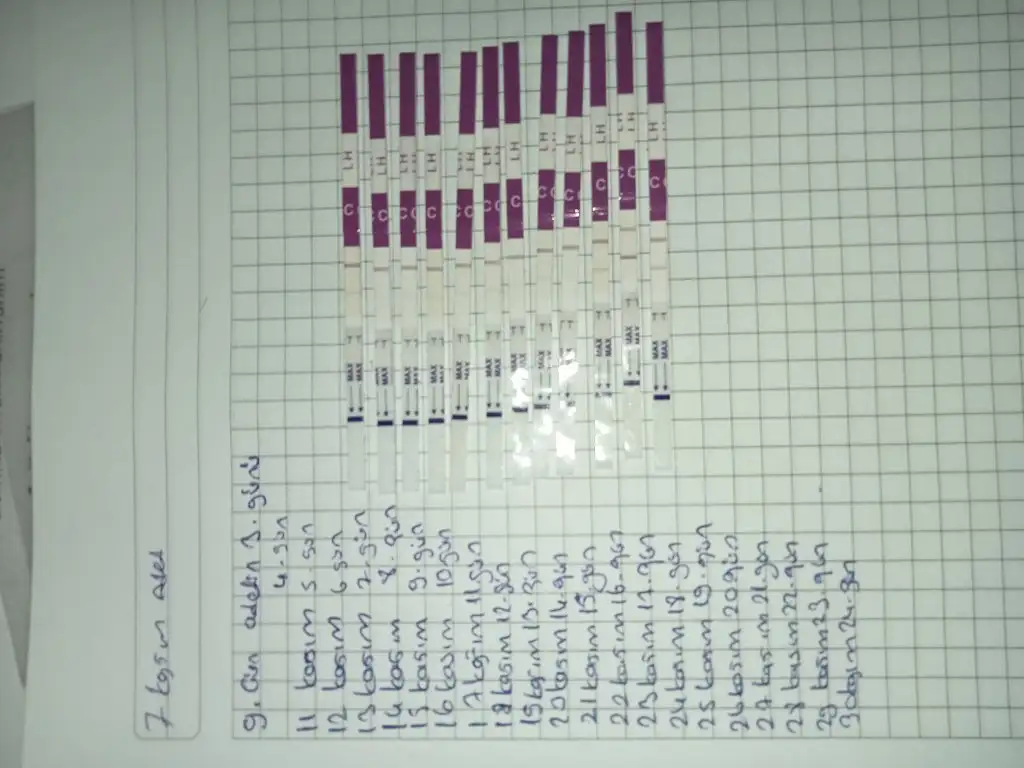 7 kasım Adet
9. Gün adetin 3. gün
4. gün
11 kasım 5. gün
12 kasım 6 gün
13 kasım 7. gün
14 kasım 8. gün
15 kasım 9. gün
16 kasım 10 gün
17 kasım 11 gün
18 kasım 12. gün
19 kasım 13. gün
20 kasım 14. gün
21 kasım 15. gün
22 kasım 16. gün
23 kasım 17. gün
24 kasım 18. gün
25 kasım 19. gün
26 kasım 20. gün
27 kasım 21. gün
28 kasım 22. gün
29 kasım 23. gün
30 kasım 24. gün
LH LH LH LH LH LH LH LH LH LH LH
C C C C C C C C C C C C
MAX MAX MAX MAX MAX MAX MAX MAX MAX